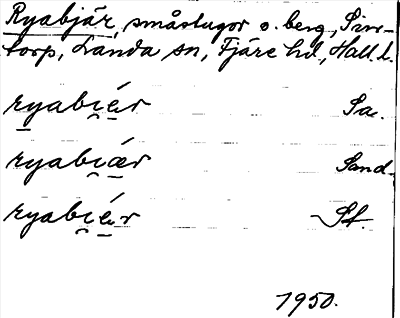 Ryabjär, småstugor o. berg, Sire-
torp, Landa sn, Fjäre hd., Hall. l.
ryabi̯ér Sa.
ryabi̯ǽr Sand.
ryabi̯ér St.
1950.